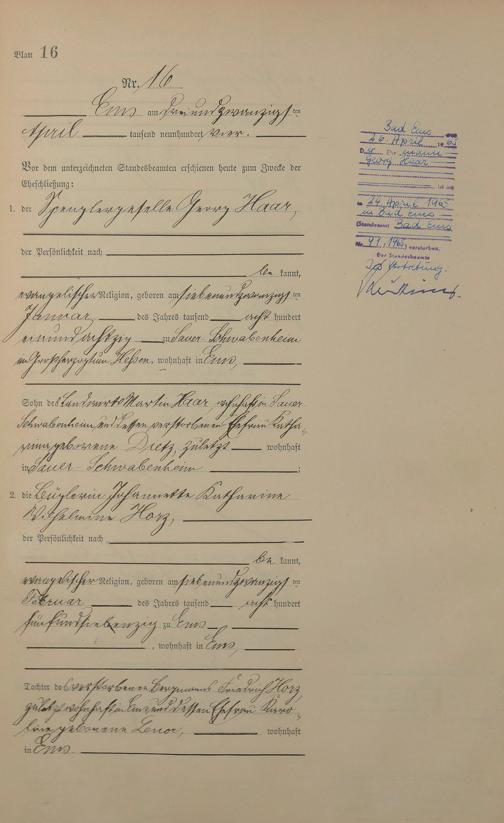 Blatt 16
Nr. 16
Ems am dreiundzwanzigsten
April tausend neunhundert vier.
Vor dem unterzeichneten Standesbeamten erschienen heute zum Zwecke der
Eheschließung:
1. der Spenglergeselle Georg Haar,
der Persönlichkeit nach
be kannt,
evangelischer Religion, geboren am siebenundzwanzigsten
Januar des Jahres tausend acht hundert
einundachtzig zu Sauer-Schwabenheim
im Großherzogtum Hessen, wohnhaft in Ems,
Sohn des Landwirts Martin Haar wohnhaft in Sauer-
Schwabenheim und dessen verstorbenen Ehefrau Katha-
rina geborene Dietz, zuletzt wohnhaft
in Sauer-Schwabenheim ;
2. die Büglerin Johannette Katharine
Wilhelmine Horz,
der Persönlichkeit nach
be kannt,
evangelischer Religion, geboren am siebenundzwanzigsten
Februar des Jahres tausend acht hundert
fünfundsiebenzig zu Ems
, wohnhaft in Ems,
Tochter des verstorbenen Bergmanns Friedrich Horz
zuletzt wohnhaft in Ems und dessen Ehefrau Karo-
line geborene wohnhaft
in Ems.
Bad Ems
26. April 19
D er Ehemann
Georg Haar
ist am
24. April 1965
in Bad Ems
(Standesamt Bad Ems
Nr. 91/1965) verstorben.
Der Standesbeamte
In Vertretung: